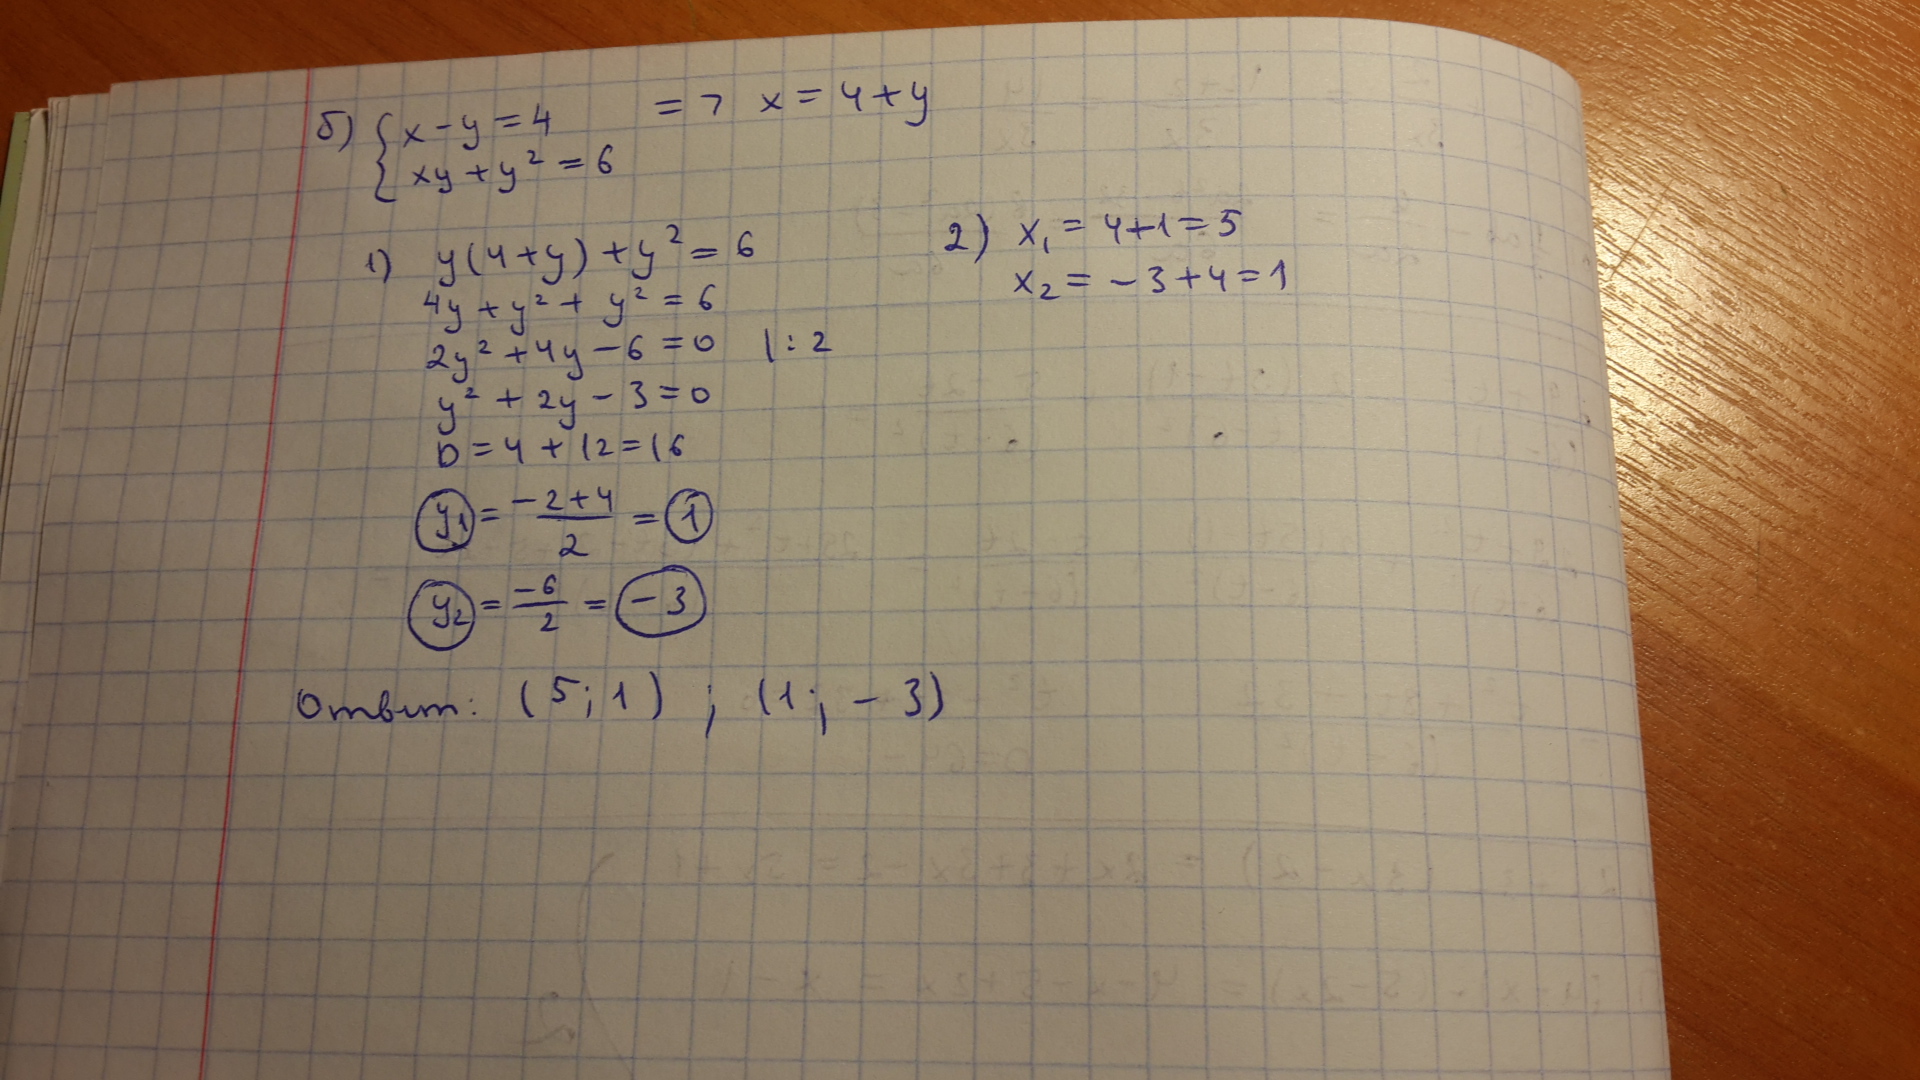 б) { x - y = 4 => x = 4 + y
xy + y² = 6
1) y(4 + y) + y² = 6
4y + y² + y² = 6
2y² + 4y - 6 = 0 |: 2
y² + 2y - 3 = 0
D = 4 + 12 = 16
y₁ = (-2 + 4)/2 = 1
y₂ = -6/2 = -3
2) x₁ = 4 + 1 = 5
x₂ = -3 + 4 = 1
Ответ: (5; 1) ; (1; -3)